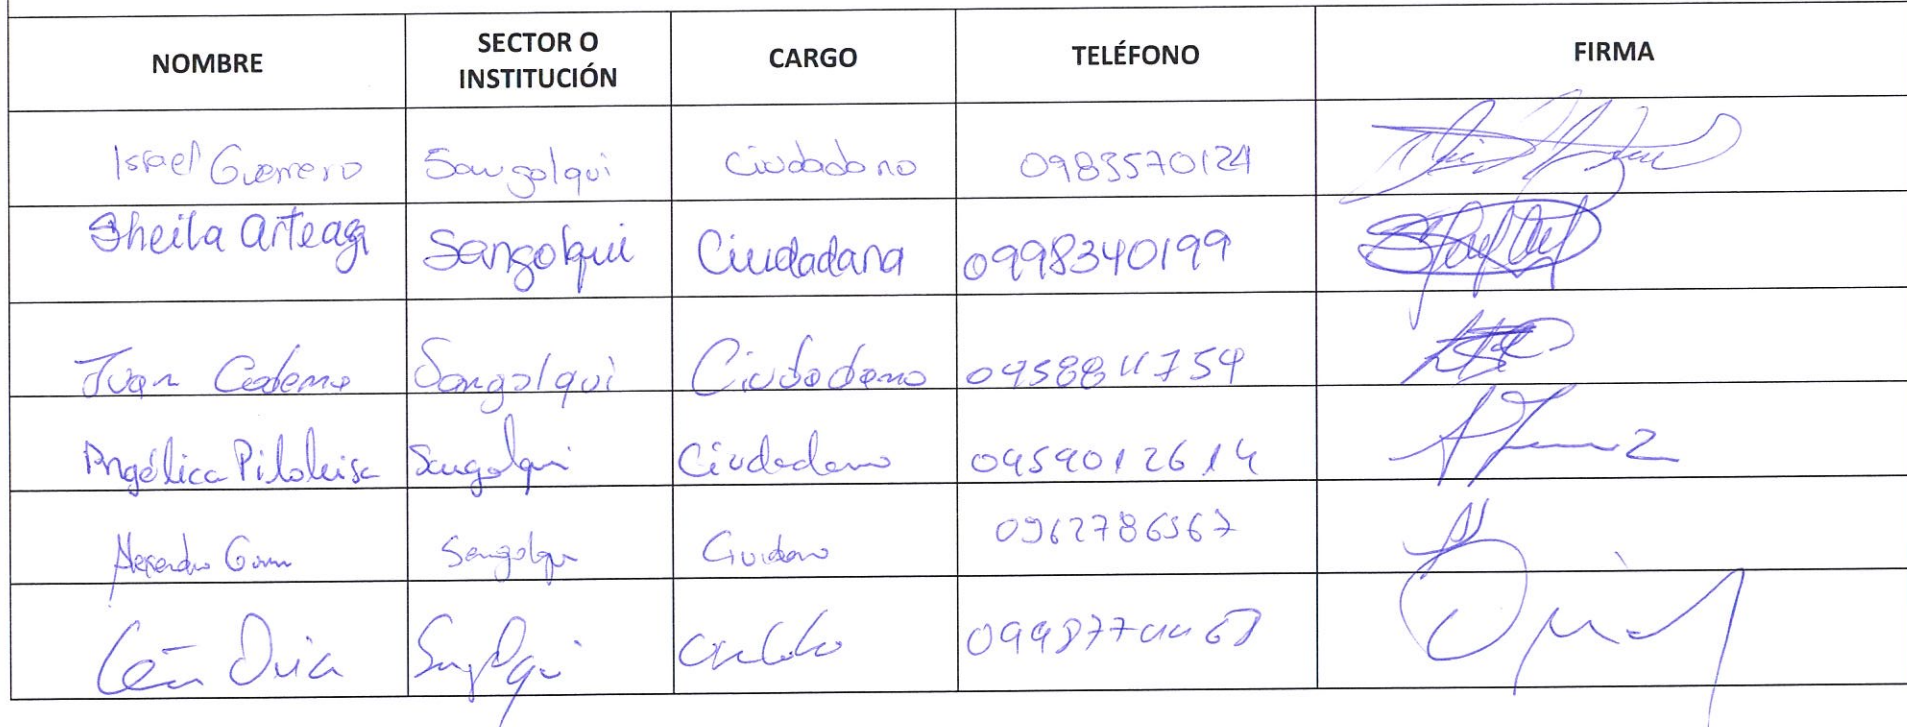 NOMBRE SECTOR O INSTITUCIÓN CARGO TELÉFONO FIRMA
Israel Guerrero Sangolqui Ciudadano 0983570124
Sheila Arteaga Sangolqui Ciudadana 0998340199
Juan Cadena Sangolqui Ciudadano
Angélica Pilaluisa Sangolqui Ciudadano 0959012614
Alexandra Sangolqui 0962786567
Sangolqui